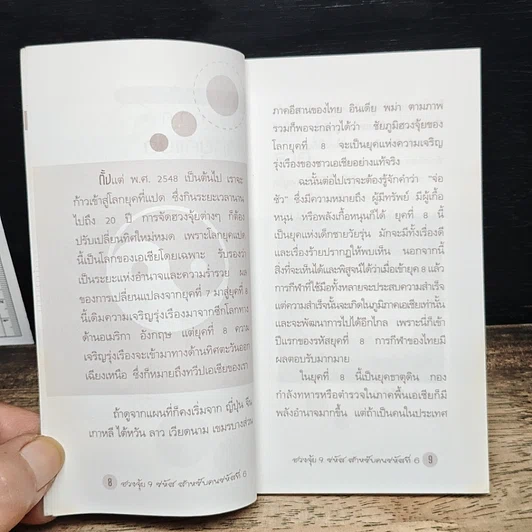 ตั้งแต่ พ.ศ. 2548 เป็นต้นไป เราจะ
ก้าวเข้าสู่โลกยุคที่แปด ซึ่งกินระยะเวลานาน
ไปถึง 20 ปี การจัดฮวงจุ้ยต่างๆ ก็ต้อง
ปรับเปลี่ยนทิศใหม่หมด เพราะโลกยุคแปด
นี้เป็นโลกของเอเชียโดยเฉพาะ รับรองว่า
เป็นระยะแห่งอำนาจและความร่ำรวย ผล
ของการเปลี่ยนแปลงจากยุคที่ 7 มาสู่ยุคที่ 8
นี้เดิมความเจริญรุ่งเรืองมาจากซีกโลกทาง
ด้านอเมริกา อังกฤษ แต่ยุคที่ 8 ความ
เจริญรุ่งเรืองจะเข้ามาทางด้านทิศตะวันออก
เฉียงเหนือ ซึ่งก็หมายถึงทวีปเอเชียของเรา
ถ้าดูจากแผนที่ก็คงเริ่มจาก ญี่ปุ่น จีน
เกาหลี ไต้หวัน ลาว เวียดนาม เขมรบางส่วน
8 ฮวงจุ้ย 9 รหัส สำหรับคนรหัสที่ 6
ภาคอีสานของไทย อินเดีย พม่า ตามภาพ
รวมก็พอจะกล่าวได้ว่า ชัยภูมิฮวงจุ้ยของ
โลกยุคที่ 8 จะเป็นยุคแห่งความเจริญ
รุ่งเรืองของชาวเอเชียอย่างแท้จริง
ฉะนั้นต่อไปเราจะต้องรู้จักคำว่า "จ่อ
ซัว" ซึ่งมีความหมายถึง ผู้มีทรัพย์ มีผู้เกื้อ
หนุน หรือพลังเกื้อหนุนก็ได้ ยุคที่ 8 นี้
เป็นยุคแห่งเด็กชายวัยรุ่น มักจะมีทั้งเรื่องดี
และเรื่องร้ายปรากฏให้พบเห็น นอกจากนี้
สิ่งที่จะเห็นได้และพิสูจน์ได้ว่าเมื่อเข้ายุค 8 แล้ว
การกีฬาที่ใช้มือทั้งหลายจะประสบความสำเร็จ
แต่ความสำเร็จนั้นจะเกิดในภูมิภาคเอเชียเท่านั้น
และจะพัฒนาการไปได้อีกไกล เพราะนี่ก็เข้า
ปีแรกของรหัสยุคที่ 8 การกีฬาของไทยมี
ผลตอบรับมากมาย
ในยุคที่ 8 นี้เป็นยุคธาตุดิน กอง
กำลังทหารหรือตำรวจในภาคพื้นเอเชียก็มี
พลังอำนาจมากขึ้น แต่ถ้าเป็นคนในประเทศ
ฮวงจุ้ย 9 รหัส สำหรับคนรหัสที่ 6 9